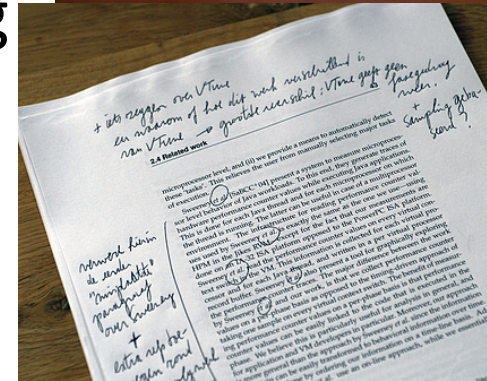 g
+ iets zeggen over VTune
en waarom of hoe dit werk verschillend is
van VTune → grootste verschil: VTune geeft geen
fasegedrag
weer.
+
sampling geba-
seerd?
2.4 Related work
microprocessor level, and (ii) we provide a means to automatically detect
these "tasks". This relieves the user from manually selecting major tasks
of execution.
Sweeney et al. [SHCC+04] present a system to measure microproces-
sor level behavior of Java workloads. To this end, they generate traces of
performance counter values while executing Java applications.
This is done for each Java thread and for each microprocessor on which
the thread is running. The latter can be useful in case of a multiprocessor
environment.
used by Sweeney et al. is exactly the same as the one we use—using
HPM in the Jikes RVM—except for the fact that our measurements are
done on IA-32 ISA platform opposed to the PowerPC ISA platform.
Sweeney et al. the performance counter values on every virtual con-
text switch in the VM. This information is collected for each virtual pro-
cessor and for each Java thread, and written in a per virtual processor
record buffer. Sweeney et al. also present a tool for graphically exploring
the performance counter traces. The major difference between the work
by Sweeney et al. and our work, is that we collect performance counter
values on a per-phase basis as opposed to the timing-driven approach of
taking one sample on every virtual context switch. The benefit of measur-
ing performance counter values on a per-phase basis is that performance
counter values can be easily linked to the code that is executed in the
phase. We believe this is particularly useful for analysis in general, and
for application and VM developers in particular. Moreover, our approach
is more general than the approach by Sweeney et al. since the overview
can be easily transformed to behavior on a time-line basis.
by ordering our information on a
et al. use an on-line approach, while we
verwerk hierin
de eerder
paragraaf
over Sweeney
+
extra